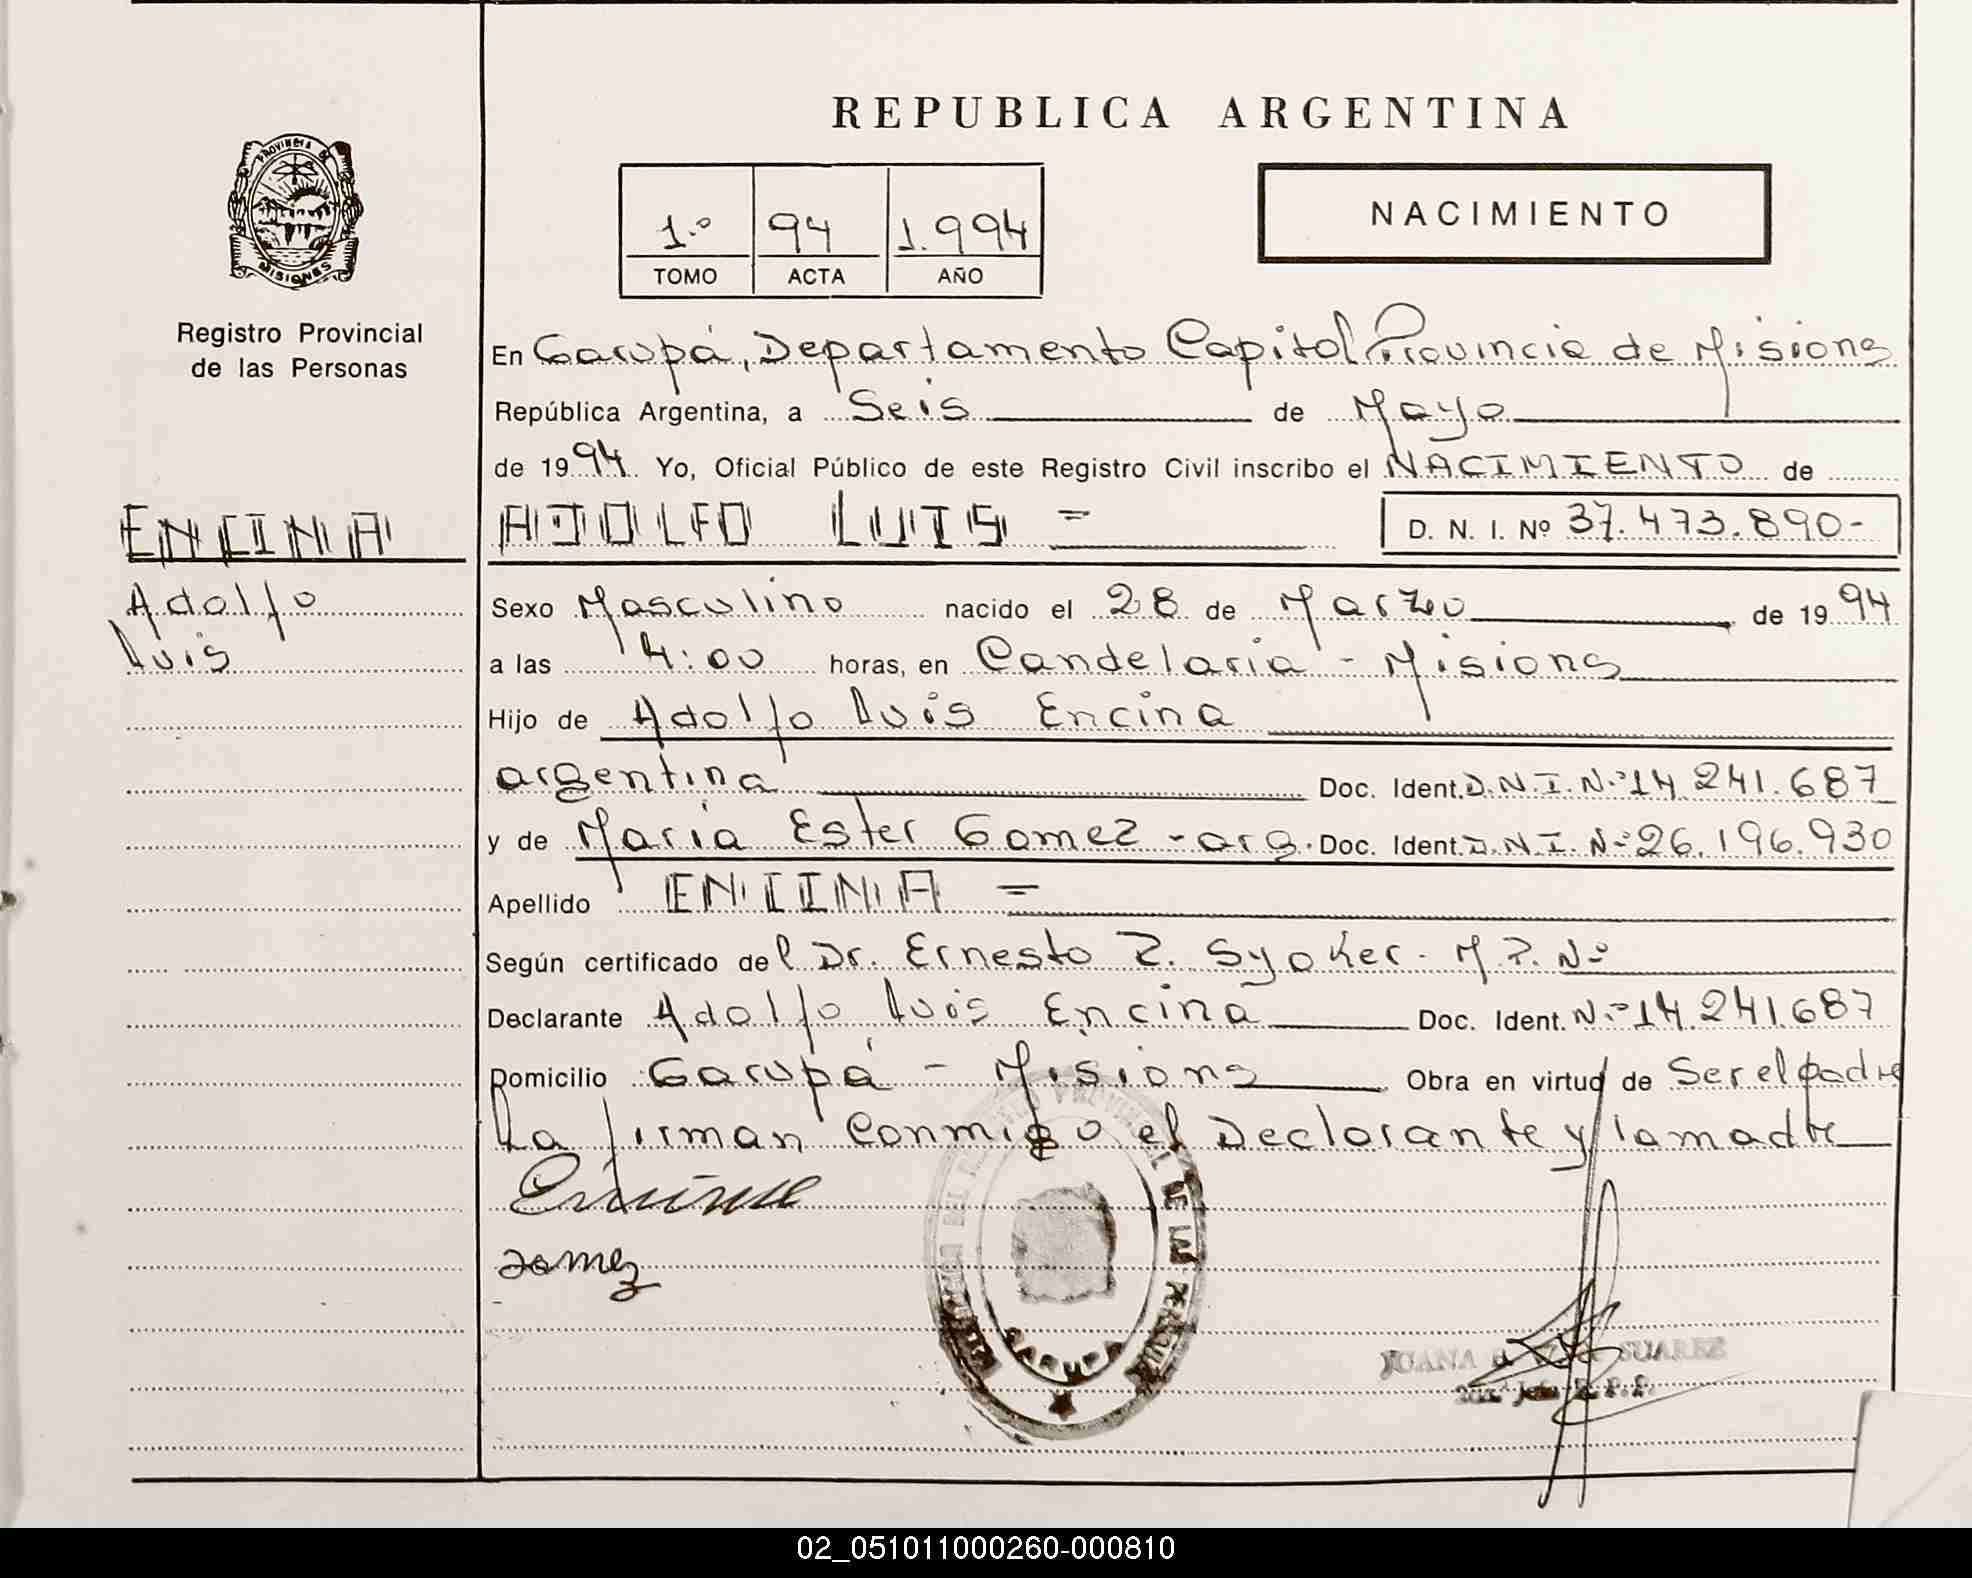 REPUBLICA ARGENTINA
PROVINCIA DE
MISIONES
Registro Provincial
de las Personas
1.º 94 1.994
TOMO ACTA AÑO
NACIMIENTO
En Garupá, Departamento Capital Provincia de Misiones
República Argentina, a Seis de Mayo
de 1994 Yo, Oficial Público de este Registro Civil inscribo el NACIMIENTO de
ENCINA
Adolfo
Luis
ADOLFO LUIS =
D. N. I. Nº 37.473.890-
Sexo Masculino nacido el 28 de Marzo de 1994
a las 14:00 horas, en Candelaria - Misiones
Hijo de Adolfo Luis Encina
argentina Doc. Ident. D.N.I.Nº 14.241.687
y de Maria Ester Gomez - arg. Doc. Ident. D.N.I. Nº 26.196.930
Apellido ENCINA =
Según certificado del Dr. Ernesto Z. Syoker. M.P. Nº
Declarante Adolfo Luis Encina Doc. Ident. N.º 14.241.687
Domicilio Garupá - Misiones Obra en virtud de Ser el padre
La firman Conmigo el Declarante y la madre
Gomez
DE LAS PERSONAS
GARUPA
JUANA SUAREZ
02_051011000260-000810